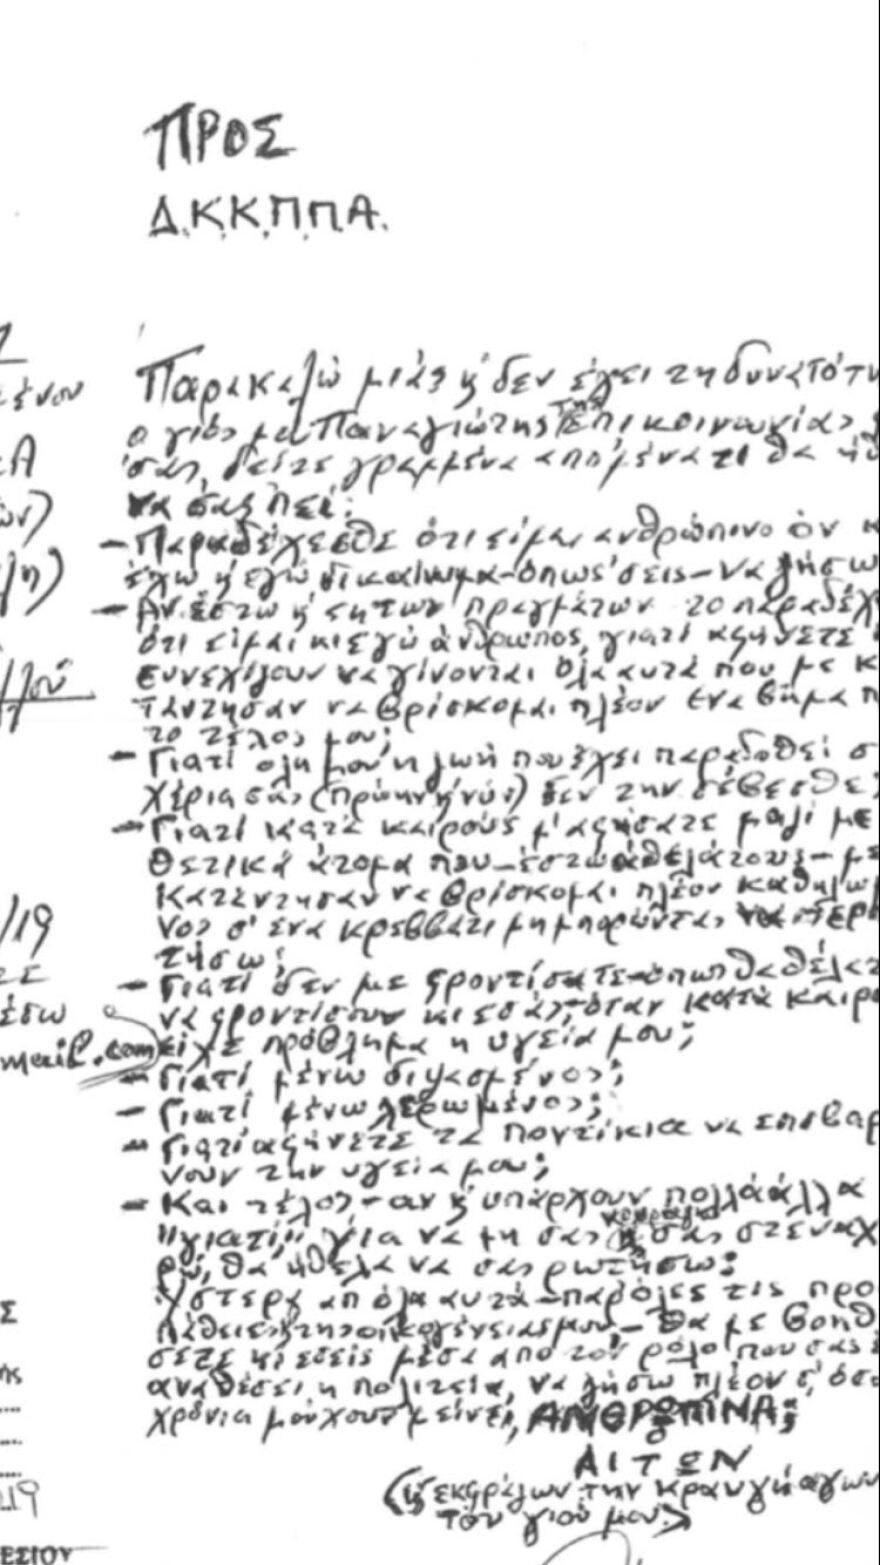 ΠΡΟΣ
Δ.Κ.Κ.Π.Π.Α.
Παρακαλώ μιάς κ' δεν έχει τη δυνατότη
ο γιός μου Παναγιώτης της επικοινωνίας
σας, δείτε γραμμένα από μένα τι θα ήθ
να σας πεί:
- Παραδέχεσθε ότι είμαι ανθρώπινο όν κ
έχω κ' εγώ δικαίωμα - όπως σείς - να ζήσω
- Αν έστω κ' των πραγμάτων το παραδέχ
ότι είμαι κι εγώ άνθρωπος, γιατί αφήνετε
συνεχίζουν να γίνονται όλα αυτά που με κ
τάντησαν να βρίσκομαι πλέον ένα βήμα π
το τέλος μου;
- Γιατί όλη μου η ζωή που έχει παραδοθεί σ
χέρια σας (πρώην κ' νύν) δεν την σέβεσθε;
- Γιατί κατά καιρούς μ' αφήσατε μαζί με
θετικά άτομα που - έστω άθελά τους - με
κατάντησαν να βρίσκομαι πλέον καθηλω
νος σ' ένα κρεββάτι μη μπορώντας να περπ
τήσω;
- Γιατί δεν με φροντίσατε - όπως θα θέλατ
να φροντίσουν κι εσάς, όταν κατά καιρο
είχε πρόβλημα η υγεία μου;
- Γιατί μένω διψασμένος;
- Γιατί μένω λερωμένος;
- Γιατί αφήνετε τα ποντίκια να επιβαρ
νουν την υγεία μου;
- Και τέλος - αν κ' υπάρχουν πολλά άλλα
"γιατί," για να μη σας κουράζω σας στεναχ
ρώ, θα ήθελα να σας ρωτήσω:
Ύστερα απ' όλα αυτά - παρόλες τις προ
πάθειες της οικογένειας μου - θα με βοηθ
σετε κ' εσείς μέσα από τον ρόλο που σας έ
αναθέσει η πολιτεία, να ζήσω πλέον σ' όσα
χρόνια μου 'χουν μείνει, ΑΝΘΡΩΠΙΝΑ;
Ο
ΑΙΤΩΝ
(κ' εκφράζων την κραυγή αγων
του γιού μου)
ένου
ών)
/19
έσω
mail.com
19
ΕΣΙΟΥ